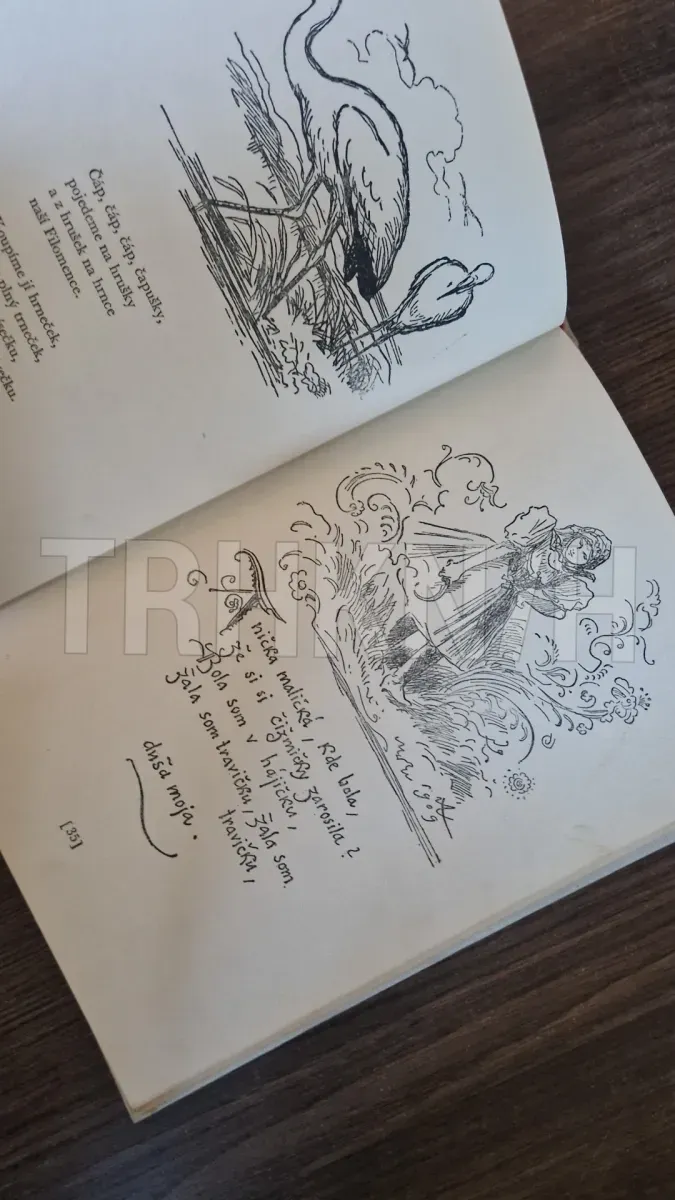 Čáp, čáp, čáp, čapušky,
pojedeme na hrušky
a z hrušek na hrnce
naší Filomence.
jí hrneček,
plný trneček,
Anička malička, kde bola,
že si si čižmičky zarosila?
Bola som v hájičku,
žala som travičku, žala som.
travičku,
duša moja.
[35]
TRHKNIH